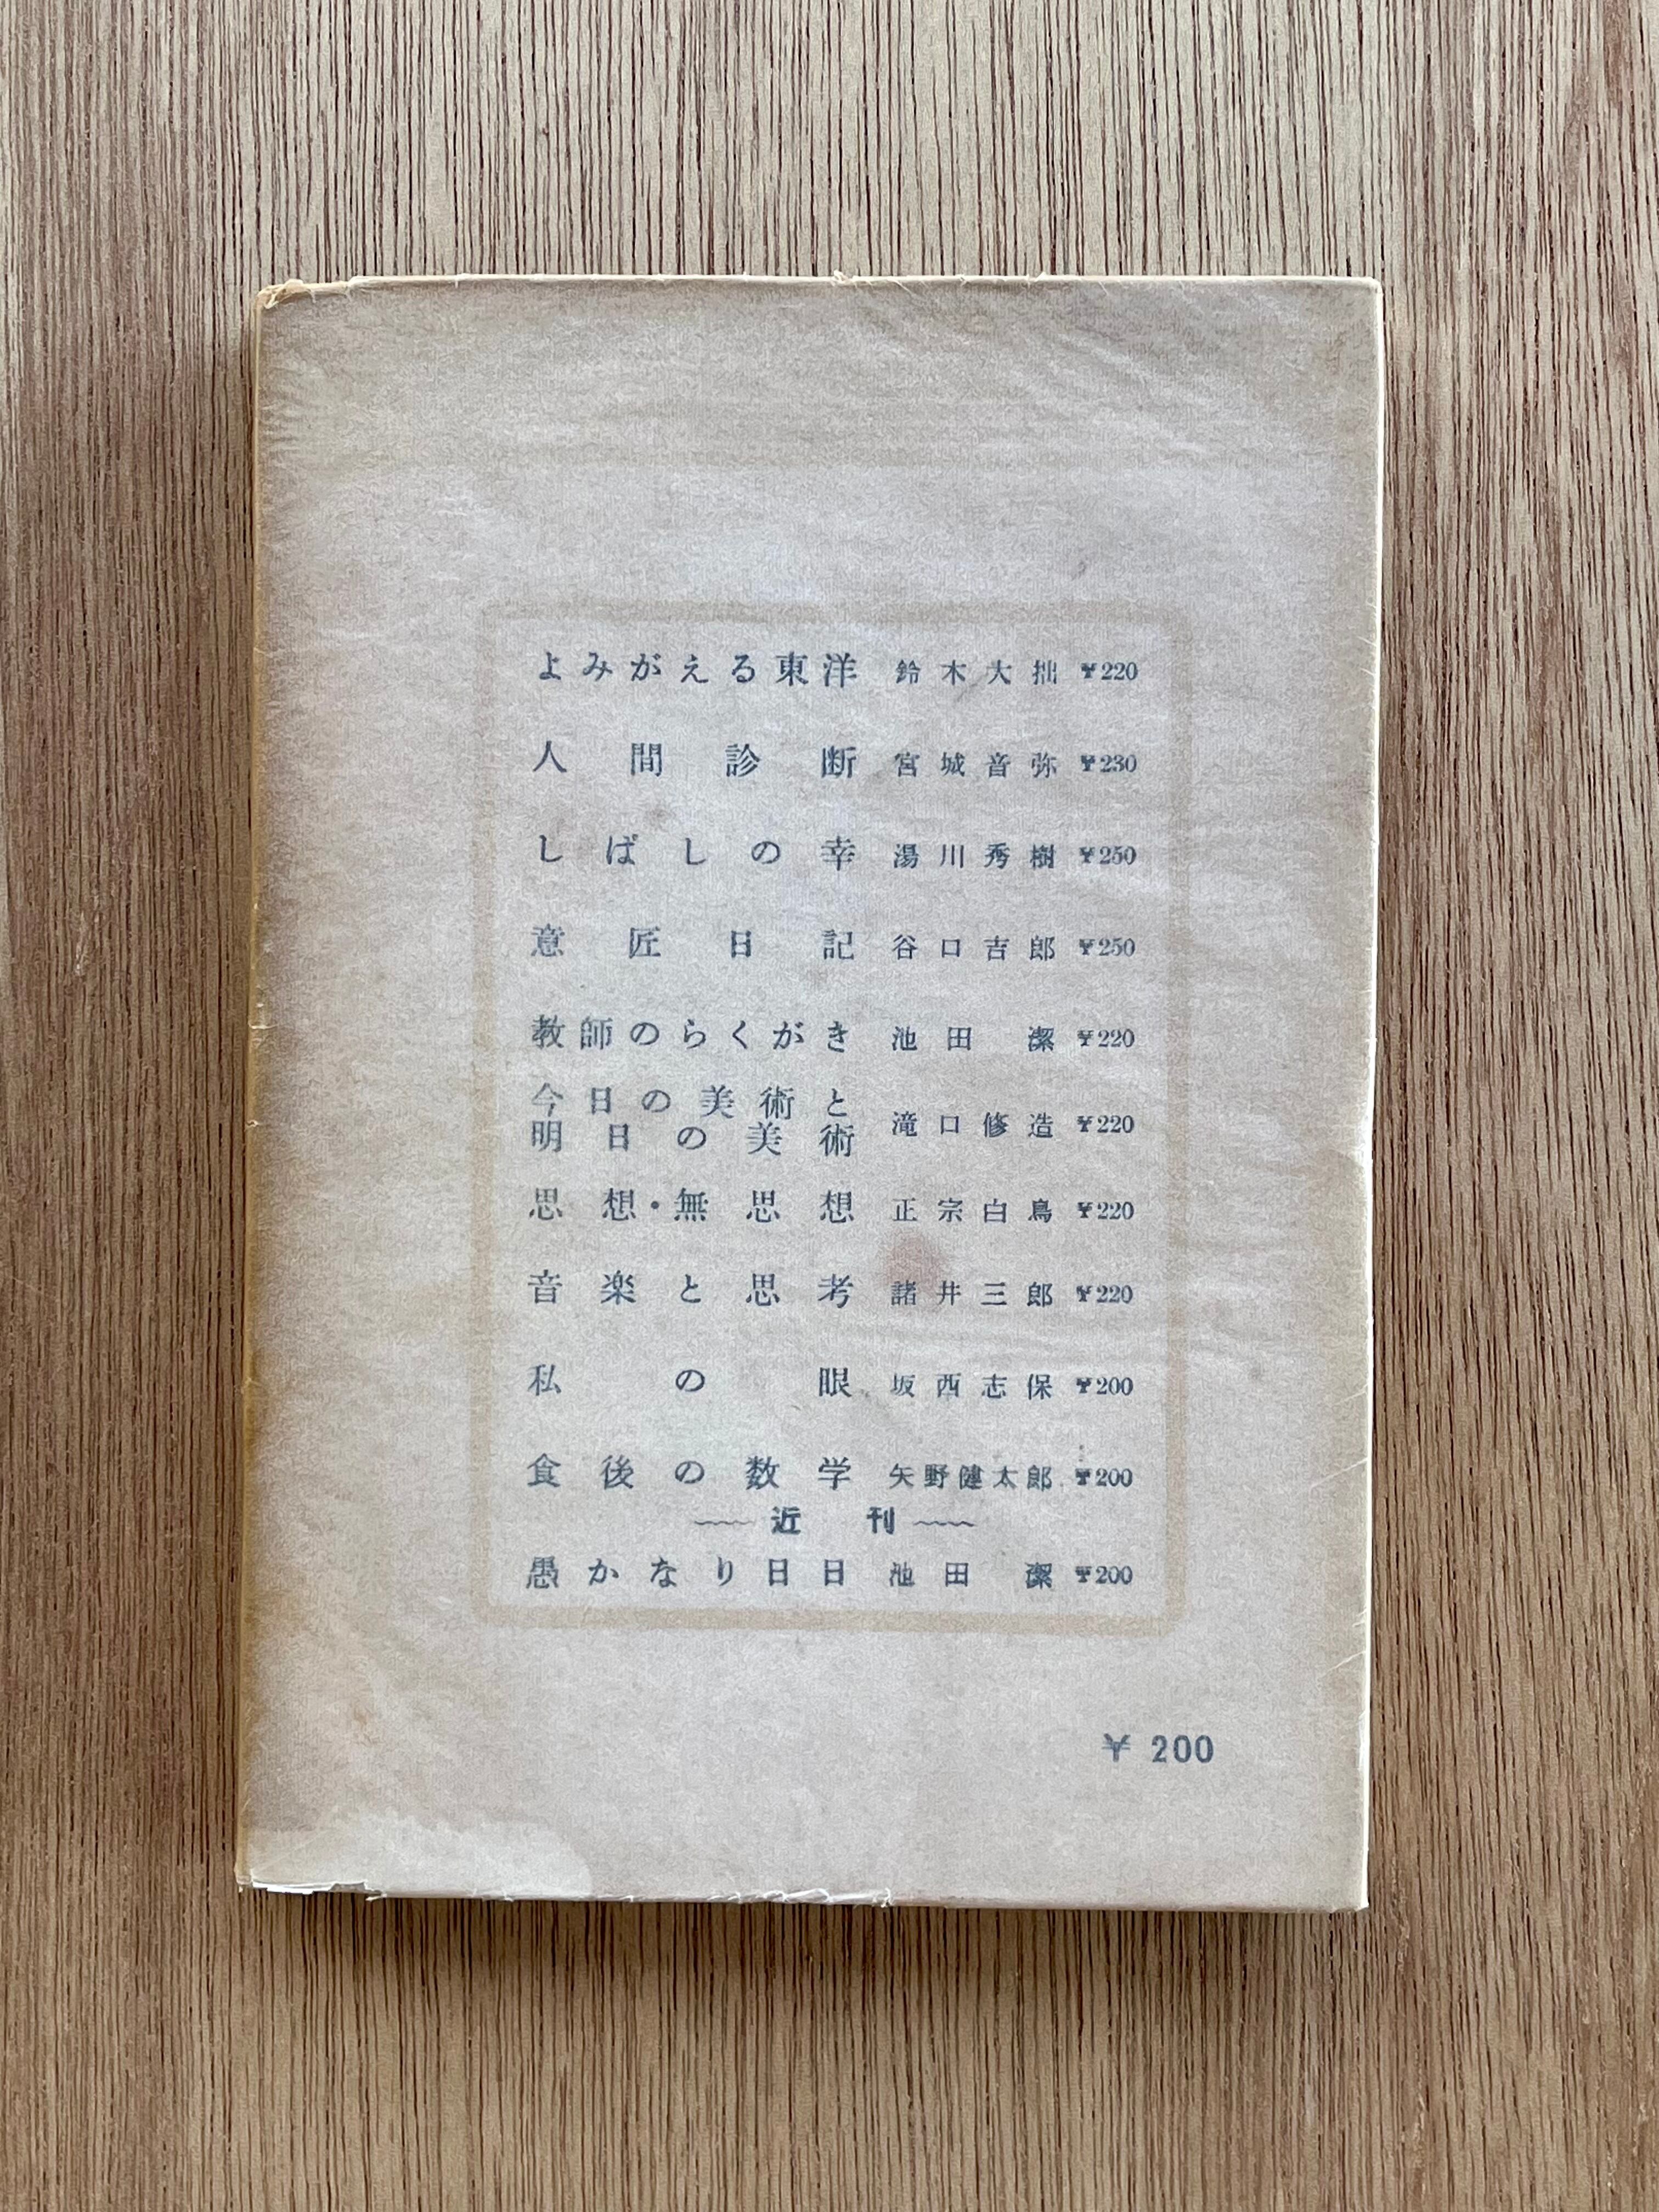 よみがえる東洋 鈴木大拙 ¥220
人間診断 宮城音弥 ¥230
しばしの幸 湯川秀樹 ¥250
意匠日記 谷口吉郎 ¥250
教師のらくがき 池田潔 ¥220
今日の美術と
明日の美術 滝口修造 ¥220
思想・無思想 正宗白鳥 ¥220
音楽と思考 諸井三郎 ¥220
私の眼 坂西志保 ¥200
食後の数学 矢野健太郎 ¥200
近刊
愚かなり日日 池田潔 ¥200
¥ 200